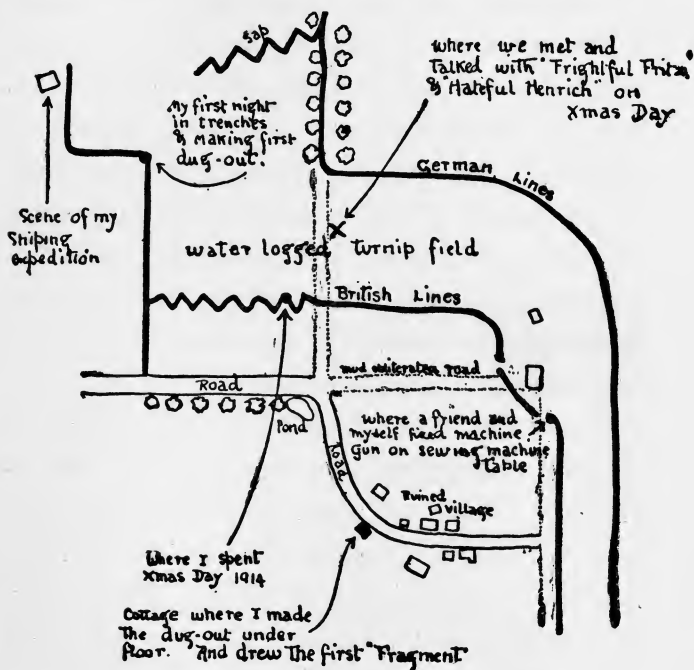 Sap
where we met and
Talked with "Frightful Fritz"
& "Hateful Henrich" on
Xmas Day
My first night
in trenches
& making first
dug-out.
German Lines
Scene of my
Sniping
expedition
water logged turnip field
British Lines
mud obliterated road
Road
Pond
where a friend and
myself fixed machine
Gun on sewing machine
table
Road
Ruined
village
Where I spent
Xmas Day 1914
Cottage where I made
The dug-out under
floor. And drew the first "Fragment"